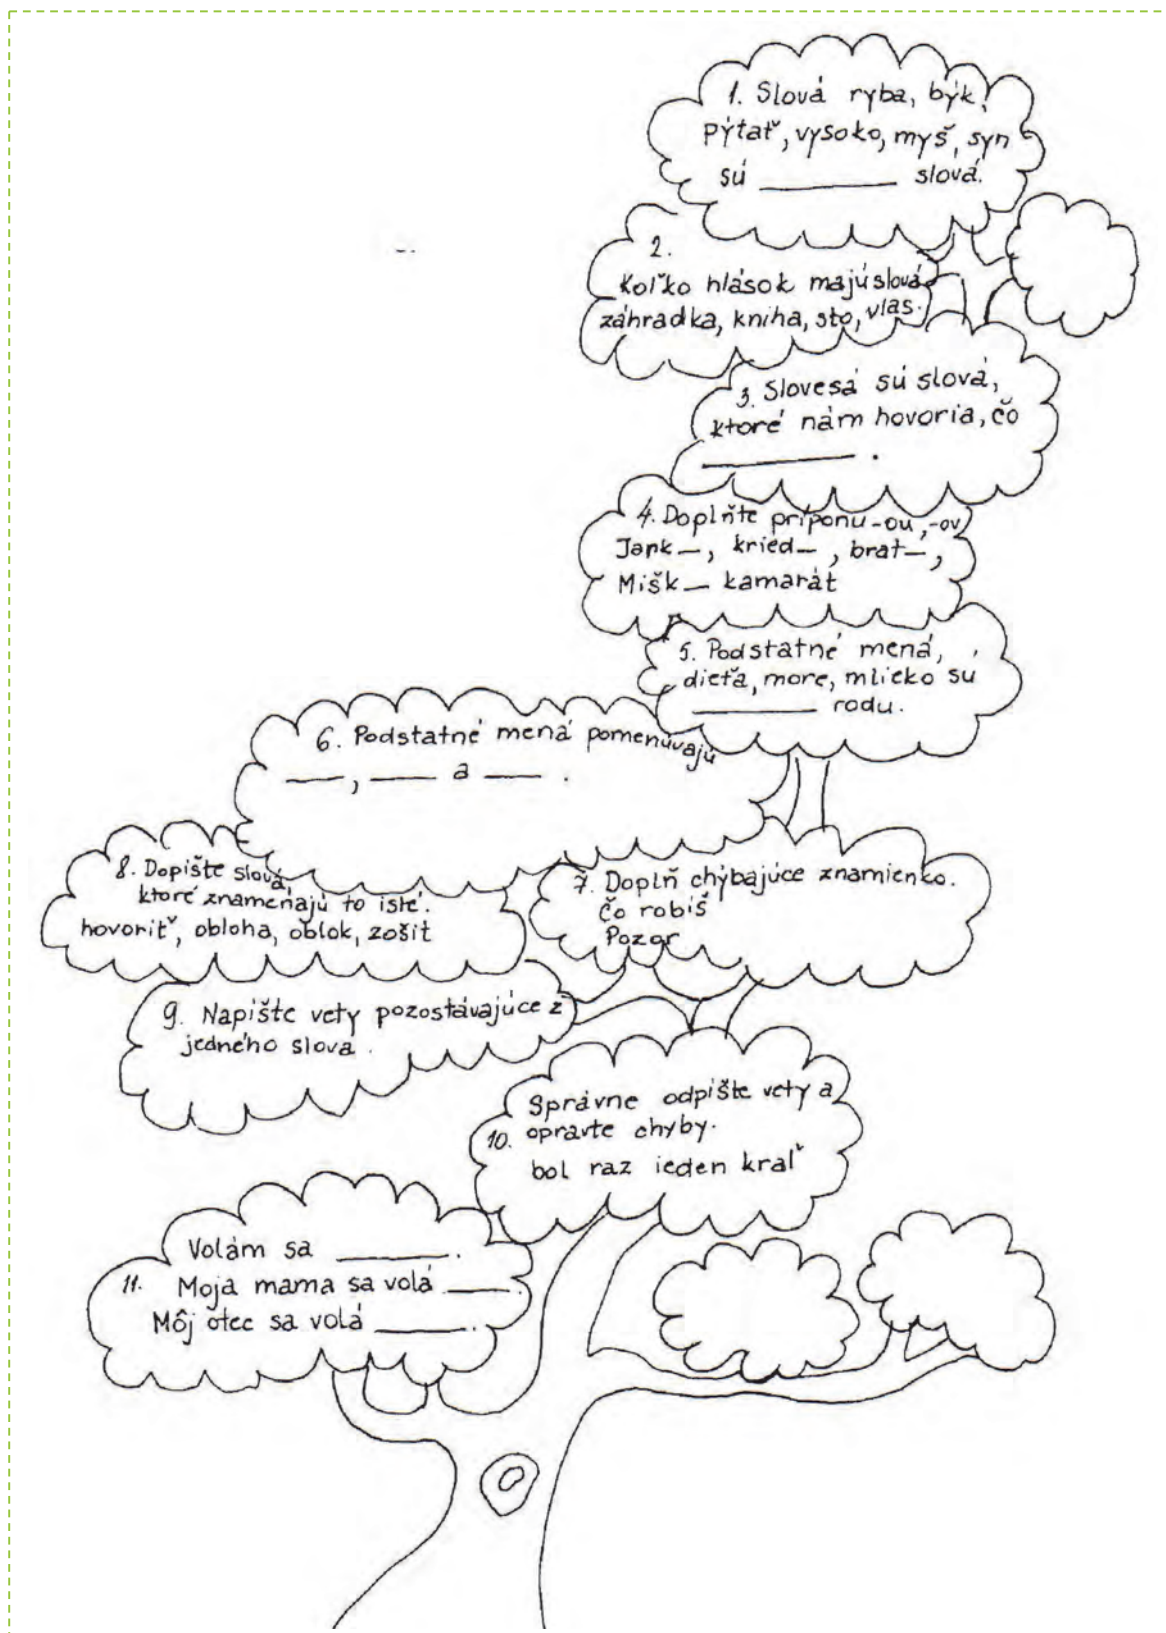 1. Slová ryba, býk,
pýtať, vysoko, myš, syn
sú ________ slová.
2.
Koľko hlások majú slová
záhradka, kniha, sto, vlas.
3. Slovesá sú slová,
ktoré nám hovoria, čo
________ .
4. Doplňte príponu -ou, -ov
Jank_, kried_, brat_,
Mišk_ kamarát
5. Podstatné mená,
dieťa, more, mlieko sú
________ rodu.
6. Podstatné mená pomenúvajú
___, ___ a ___ .
8. Dopíšte slová,
ktoré znamenajú to isté.
hovoriť, obloha, oblok, zošit
7. Doplň chýbajúce znamienko.
čo robíš
Pozor
9. Napíšte vety pozostávajúce z
jedného slova.
Správne odpíšte vety a
10. opravte chyby.
bol raz ieden kraľ
Volám sa ________.
11. Moja mama sa volá ____.
Môj otec sa volá ______.